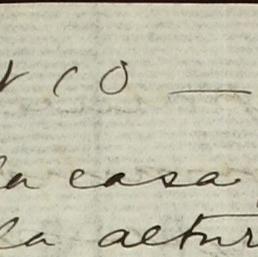 co —
la casa
la altur